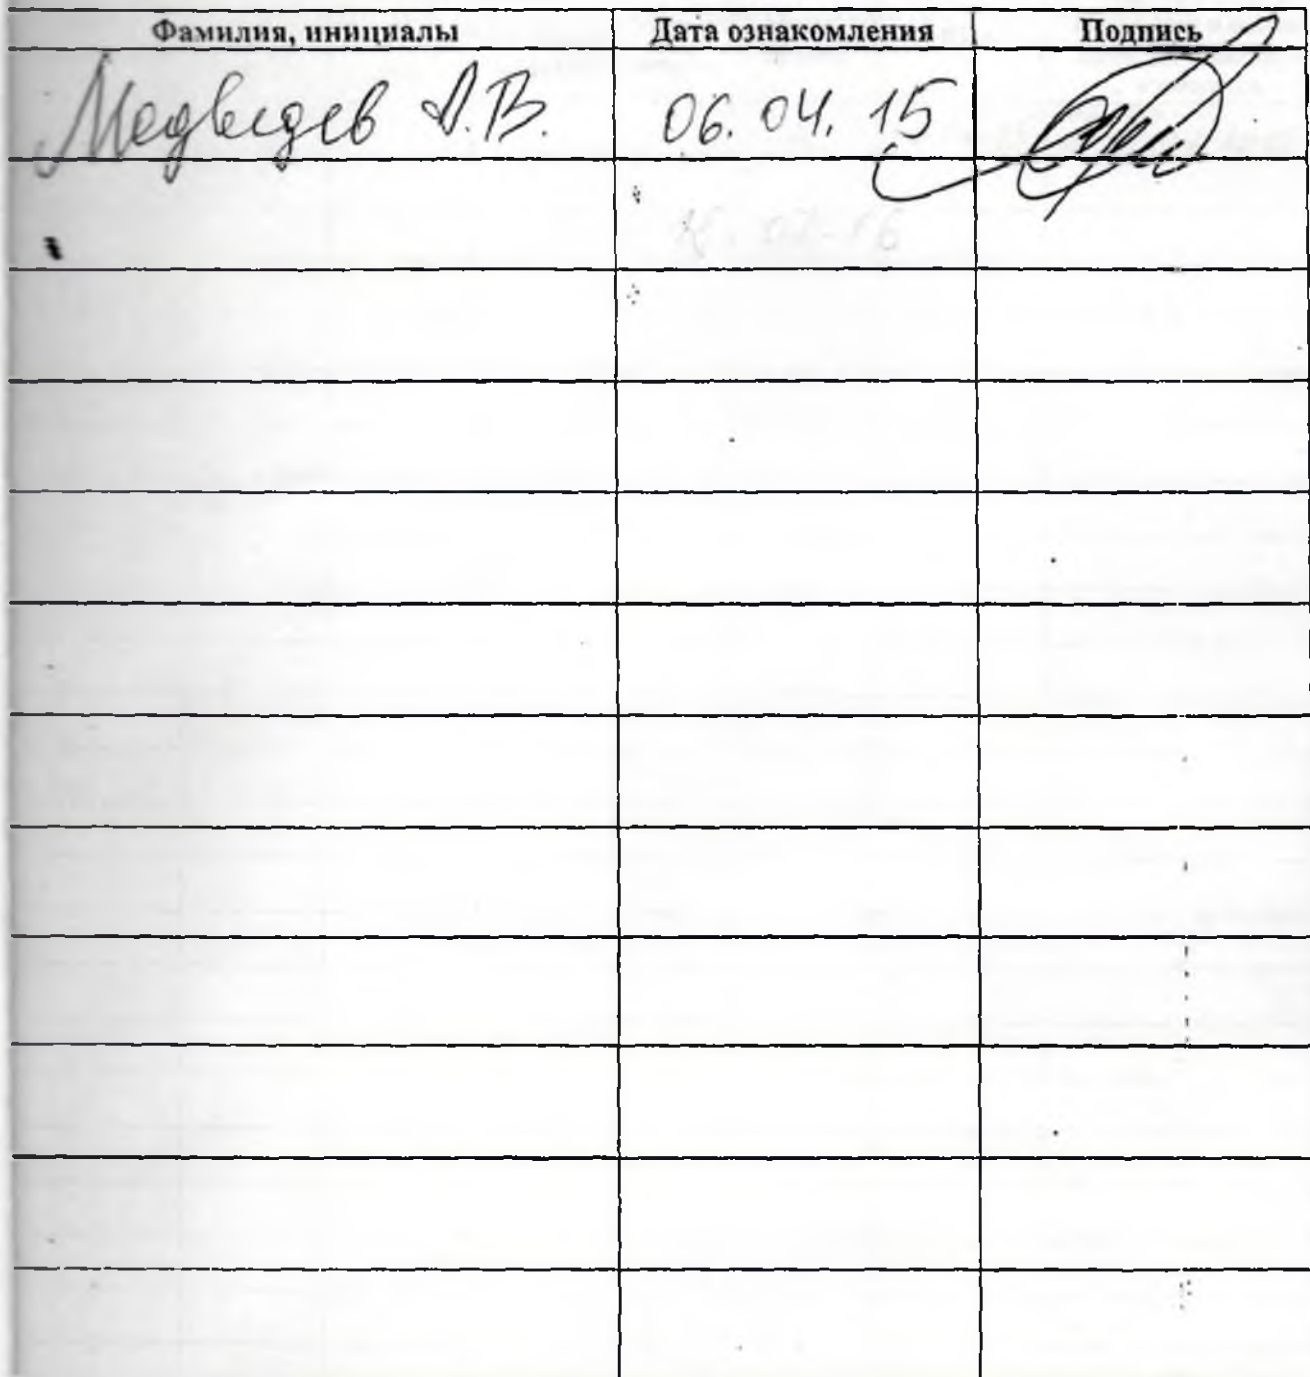 Фамилия, инициалы Дата ознакомления Подпись
Медведев А.В. 06.04.15